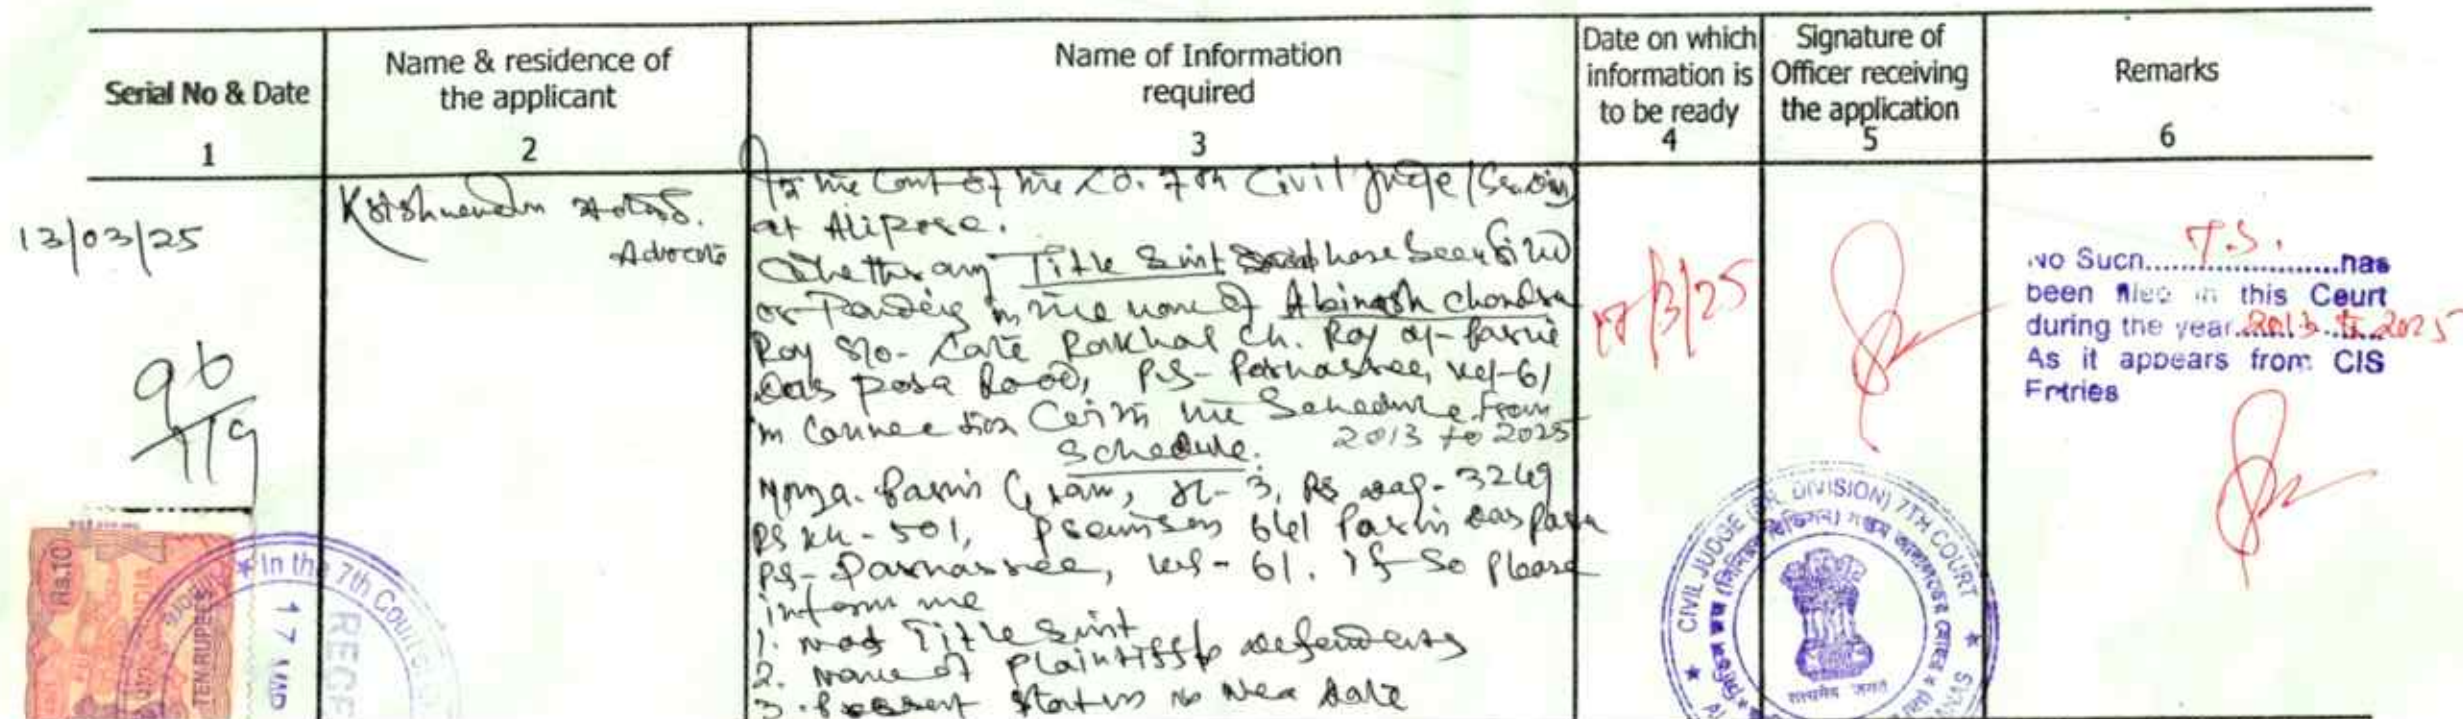 Serial No & Date
1
Name & residence of
the applicant
2
Name of Information
required
3
Date on which
information is
to be ready
4
Signature of
Officer receiving
the application
5
Remarks
6
13/03/25
Advocate
at Alipore.
Whether any Title Suit have been filed
or Pending in the name of Abinash Chandra
Roy S/o- Late Rakhal Ch. Roy of-
Das Para Road, P.S- Parnasree, Kol-61
in Connection with the Schedule From
2013 to 2025
Schedule.
RS Dag- 3249
RS Kh- 501, Premises
PS- Parnasree, Kol- 61. If so please
inform me
1. Title Suit
2. Name of Plaintiffs & defendants
3. Present Status & Next date
17/3/25
No Such T.S. has
been filed in this Court
during the year 2013 to 2025
As it appears from CIS
Entries
Rs.10
TEN RUPEES
INDIA
In the 7th Court
17 MAR
CIVIL JUDGE (SR. DIVISION) 7TH COURT
सत्यमेव जयते